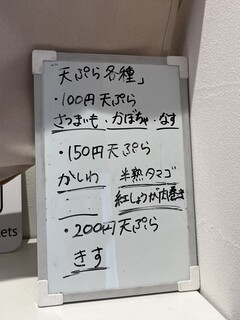 「天ぷら各種」
・100円天ぷら
さつまいも・かぼちゃ・なす
・150円天ぷら
かしわ 半熟タマゴ
紅しょうが肉巻き
・200円天ぷら
きす
ets